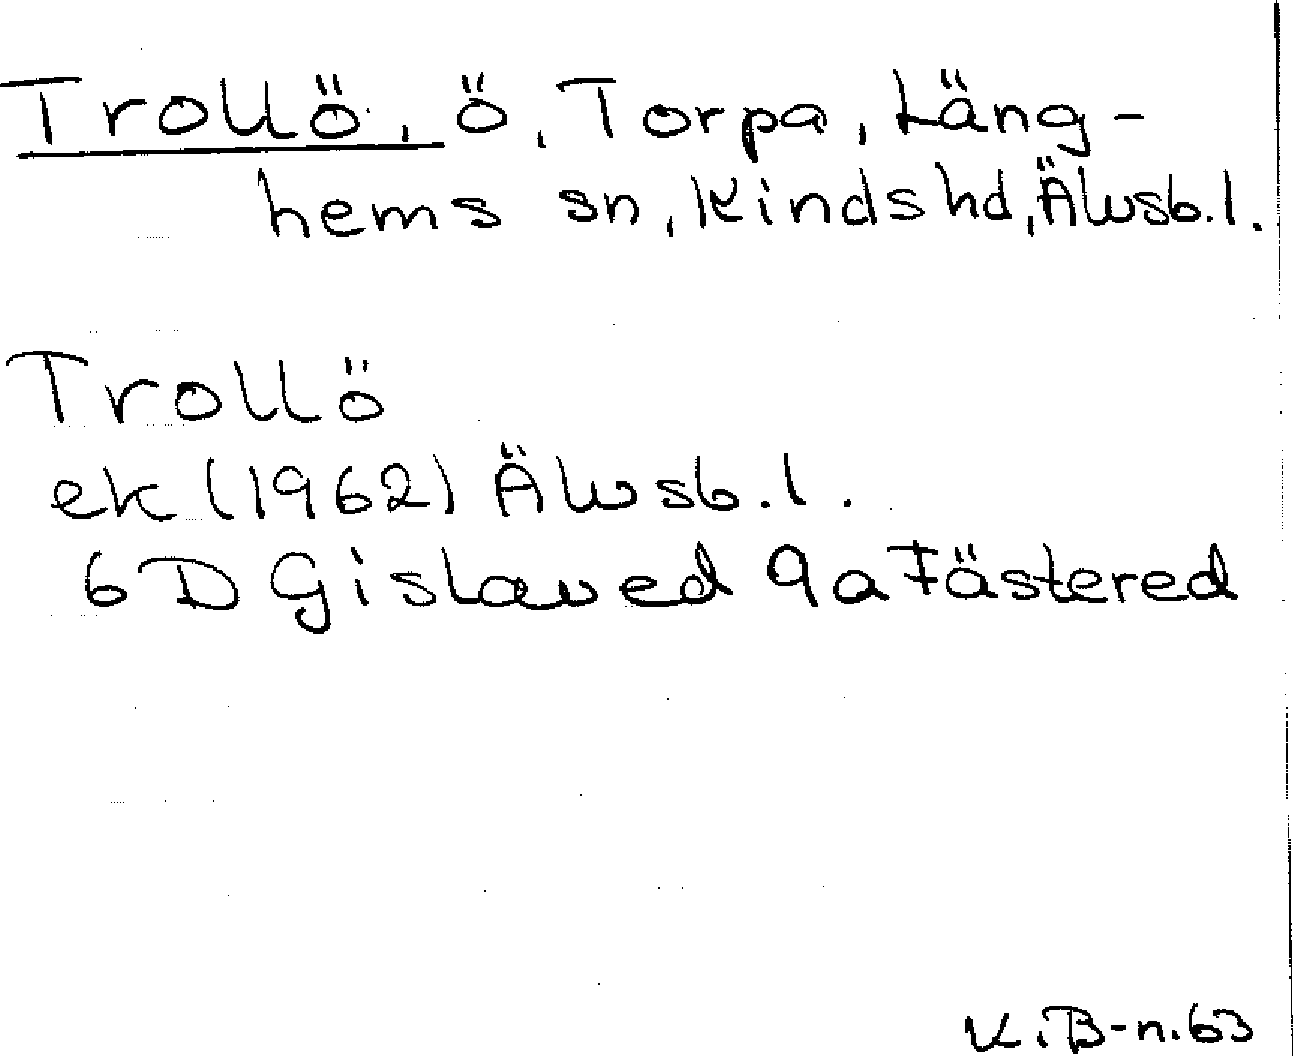 Trollö, ö, Torpa, Läng-
hems sn, Kinds hd, Älvsb. l.
Trollö
ek (1962) Älvsb. l.
6D Gislaved 9a Fästered
K.B-n. 63